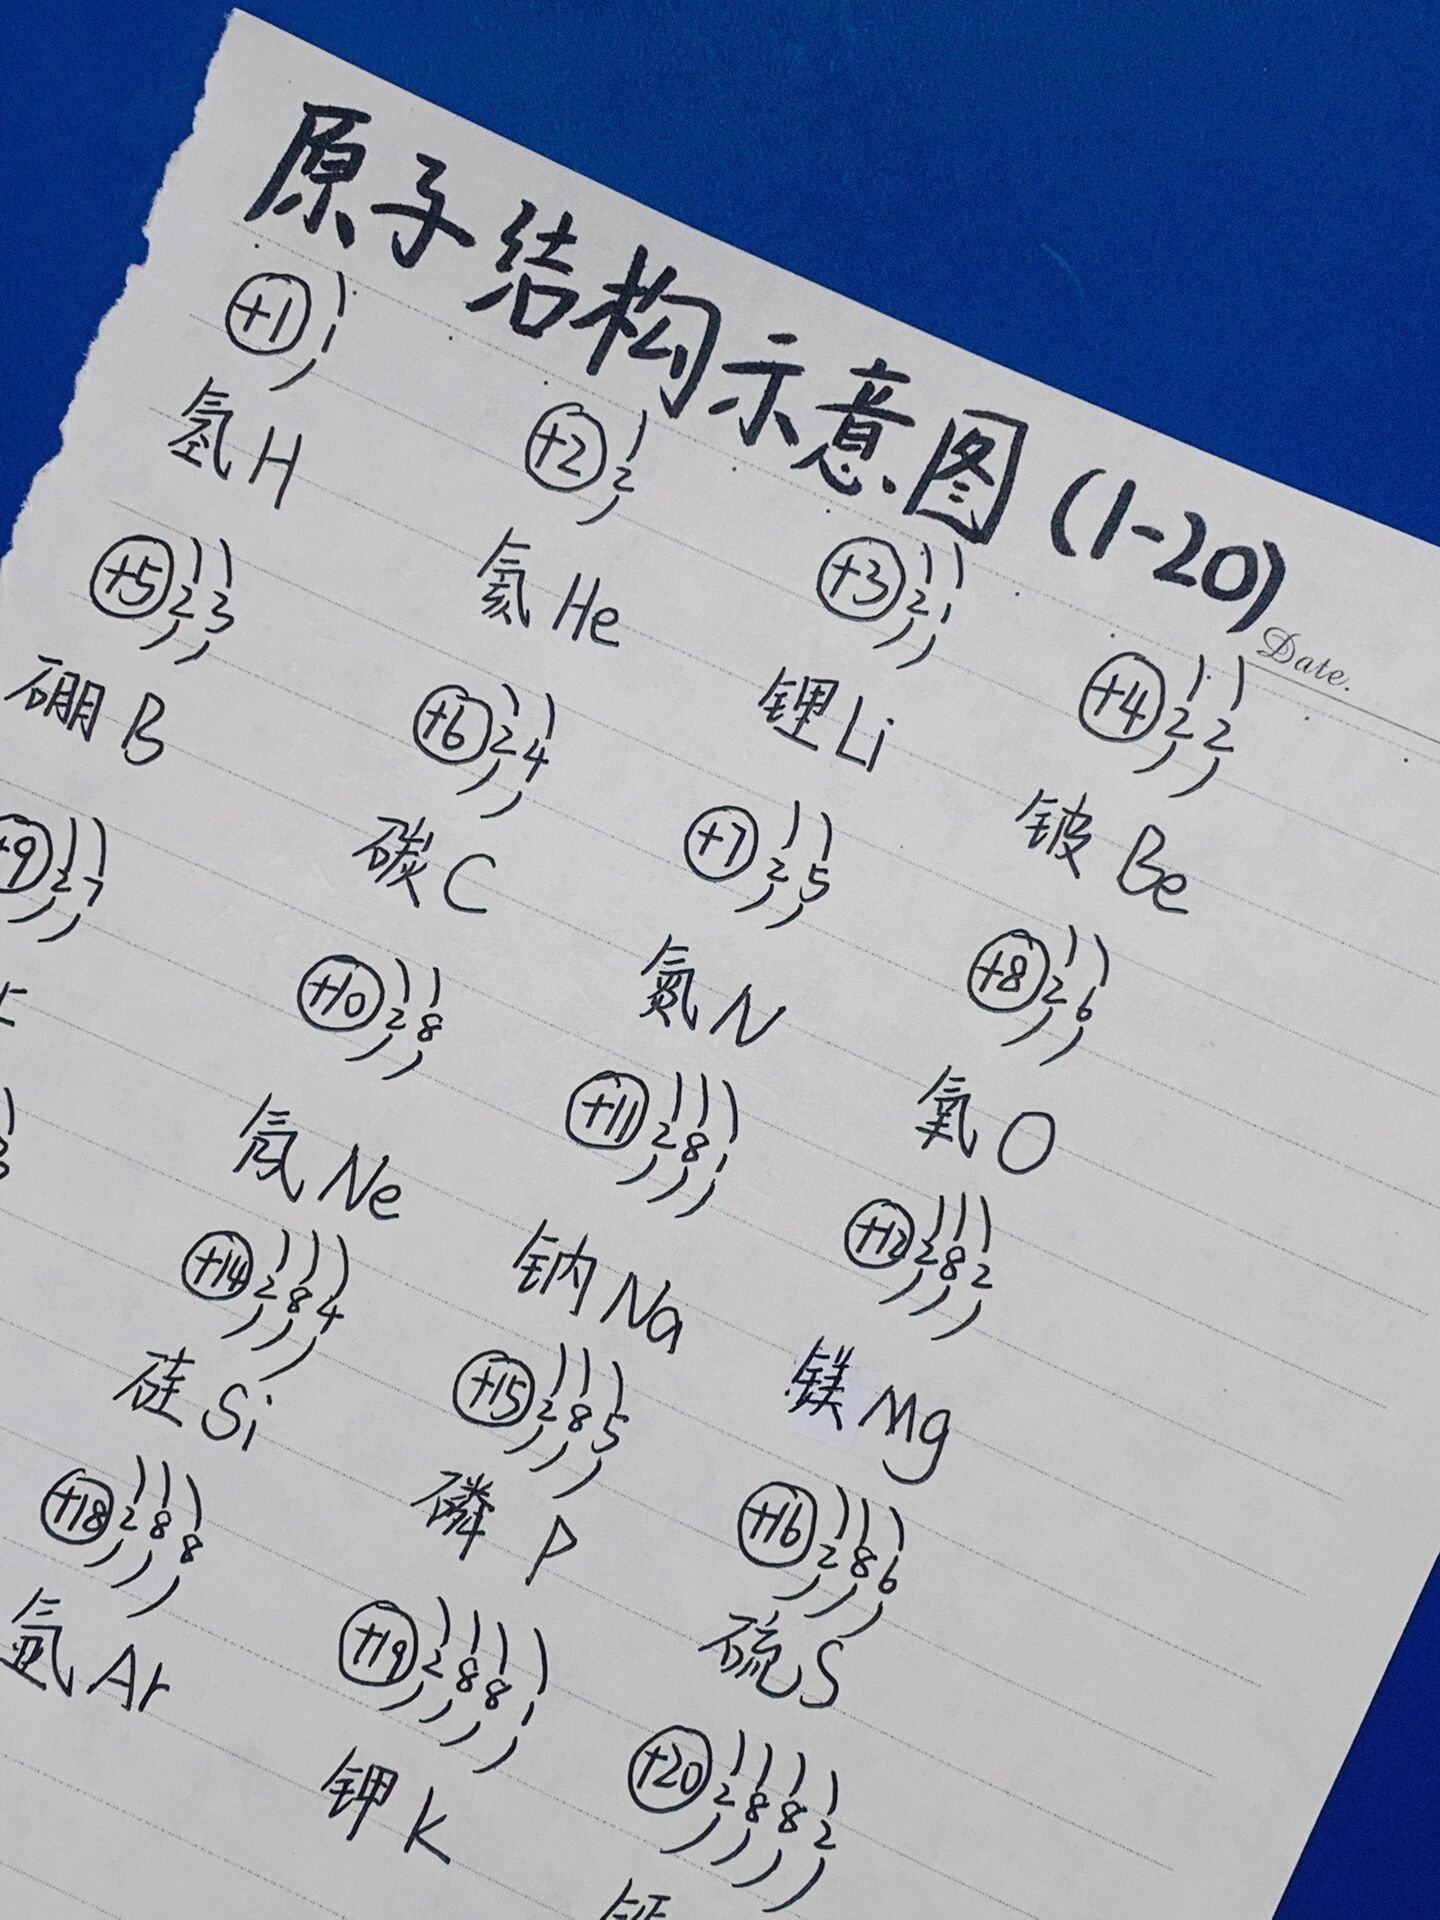 原子结构示意图(1-20)
Date.
+1 1
+2 2
+3 2 1
+4 2 2
氢 H
氦 He
锂 Li
铍 Be
+5 2 3
+6 2 4
+7 2 5
+8 2 6
硼 B
碳 C
氮 N
氧 O
+9 2 7
+10 2 8
+11 2 8 1
+12 2 8 2
氖 Ne
钠 Na
镁 Mg
+14 2 8 4
+15 2 8 5
+16 2 8 6
硅 Si
磷 P
硫 S
+18 2 8 8
+19 2 8 8 1
+20 2 8 8 2
氩 Ar
钾 K
钙